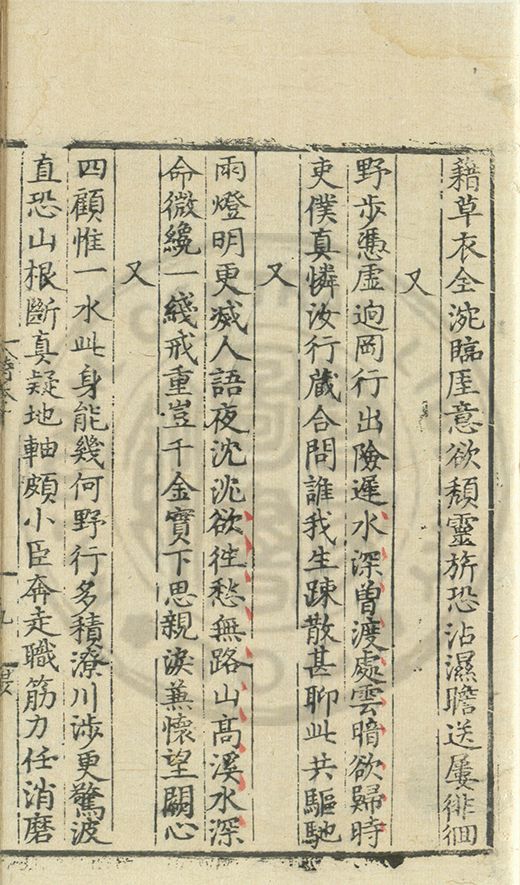 藉草衣全涴臨厓意欲頹靈旂恐沾濕瞻送屢徘徊
又
野步憑虛逈岡行出險遲水深曾渡處雲暗欲歸時
吏僕真憐汝行蔵合問誰我生踈散甚聊此共驅馳
又
雨燈明更滅人語夜沈沈欲徃愁無路山高溪水深
命微纔一綫戒重豈千金實下思親淚兼懷望闕心
又
四顧惟一水此身能幾何野行多積潦川涉更驚波
直恐山根斷真疑地軸頗小臣奔走職筋力任消磨
九